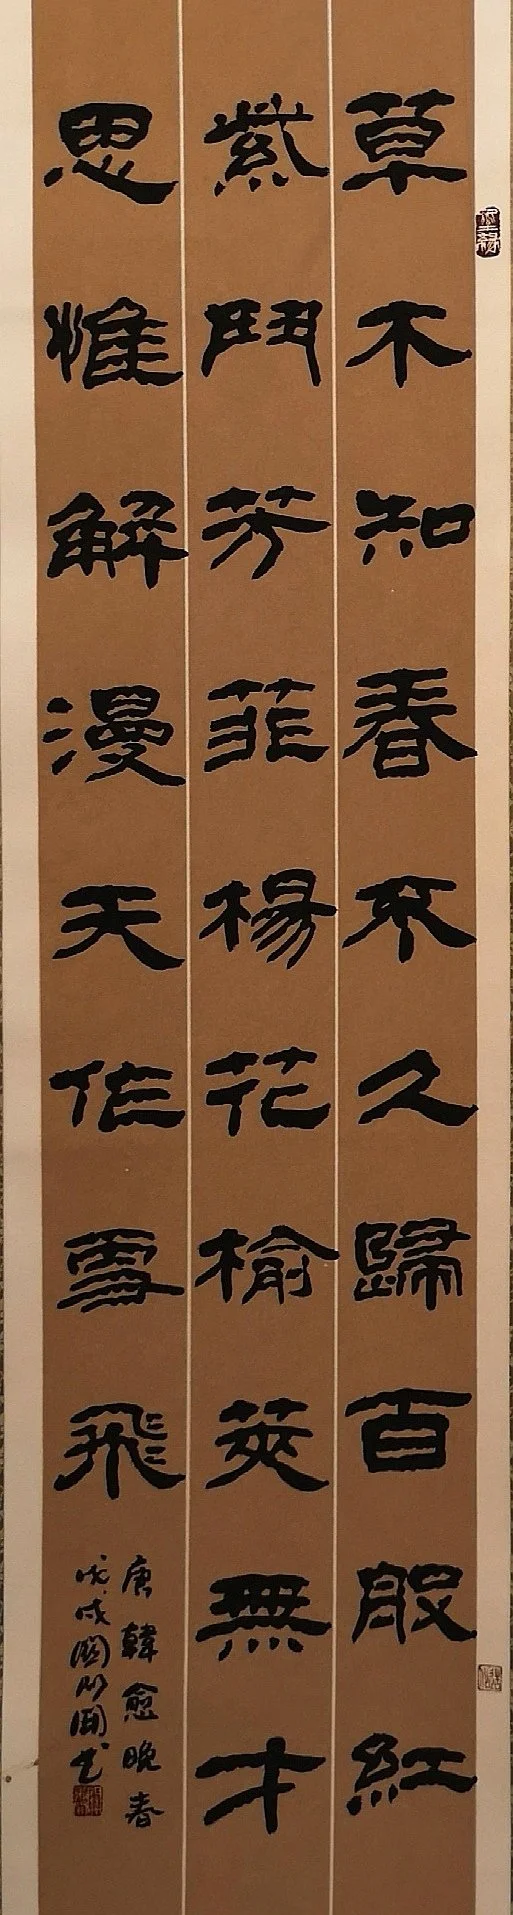 草木知春不久歸百般紅
紫鬥芳菲楊花榆莢無才
思惟解漫天作雪飛
唐韓愈晚春
戊戌